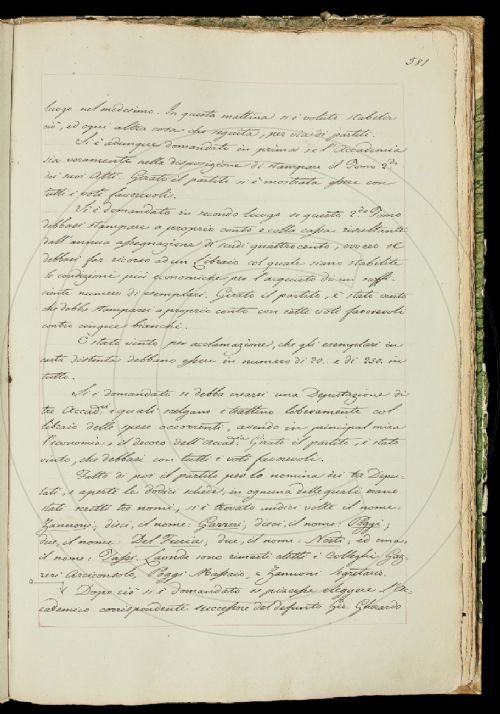 581
luogo nel medesimo. In questa mattina si è voluto stabilir
ciò, ed ogni altra cosa che seguita, per via di partiti.
Si è adunque domandato in prima se l'Accademia
sia veramente nella disposizione di stampare il Tomo 2.do
dei suoi Atti. Girato il partito si è mostrata essere con
tutti i voti favorevoli.
Si è domandato in secondo luogo se questo 2.do Tomo
debbasi stampare a proprio conto e colla cassa risultante
dall'annua assegnazione di scudi quattrocento, ovvero se
debbasi far ricorso ad un Libraio col quale siano stabilite
le condizioni più economiche per l'acquisto di un suffi-
ciente numero di esemplari. Girato il partito, è stato vinto
che debba stamparsi a proprio conto con sette voti favorevoli
contro cinque bianchi.
È stato vinto per acclamazione, che gli esemplari in
carta distinta debbano essere in numero di 20. e di 250. in
tutto.
Si è domandato se debba crearsi una Deputazione di
tre Accad.ci i quali scelgano e trattino liberamente col
libraio delle spese occorrenti, avendo in principal mira
l'economia e il decoro dell'Accad.ia Girato il partito, è stato
vinto, che debbasi con tutti i voti favorevoli.
Fatto di poi il partito per la nomina dei tre Depu-
tati, e aperte le dodici schede, in ognuna delle quali erano
stati scritti tre nomi, si è trovato undici volte il nome:
Zannoni; dieci, il nome: Gazzeri; dieci, il nome: Poggi;
due, il nome: Del Furia, due, il nome: Nesti, ed una,
il nome: Tassi. Laonde sono rimasti eletti i Colleghi Gaz-
zeri Arciconsolo, Poggi Massaio, e Zannoni Segretario.
Dopo ciò si è domandato se piacesse eleggere l'Ac-
cademico corrispondente successore del defunto Gio. Gherardo